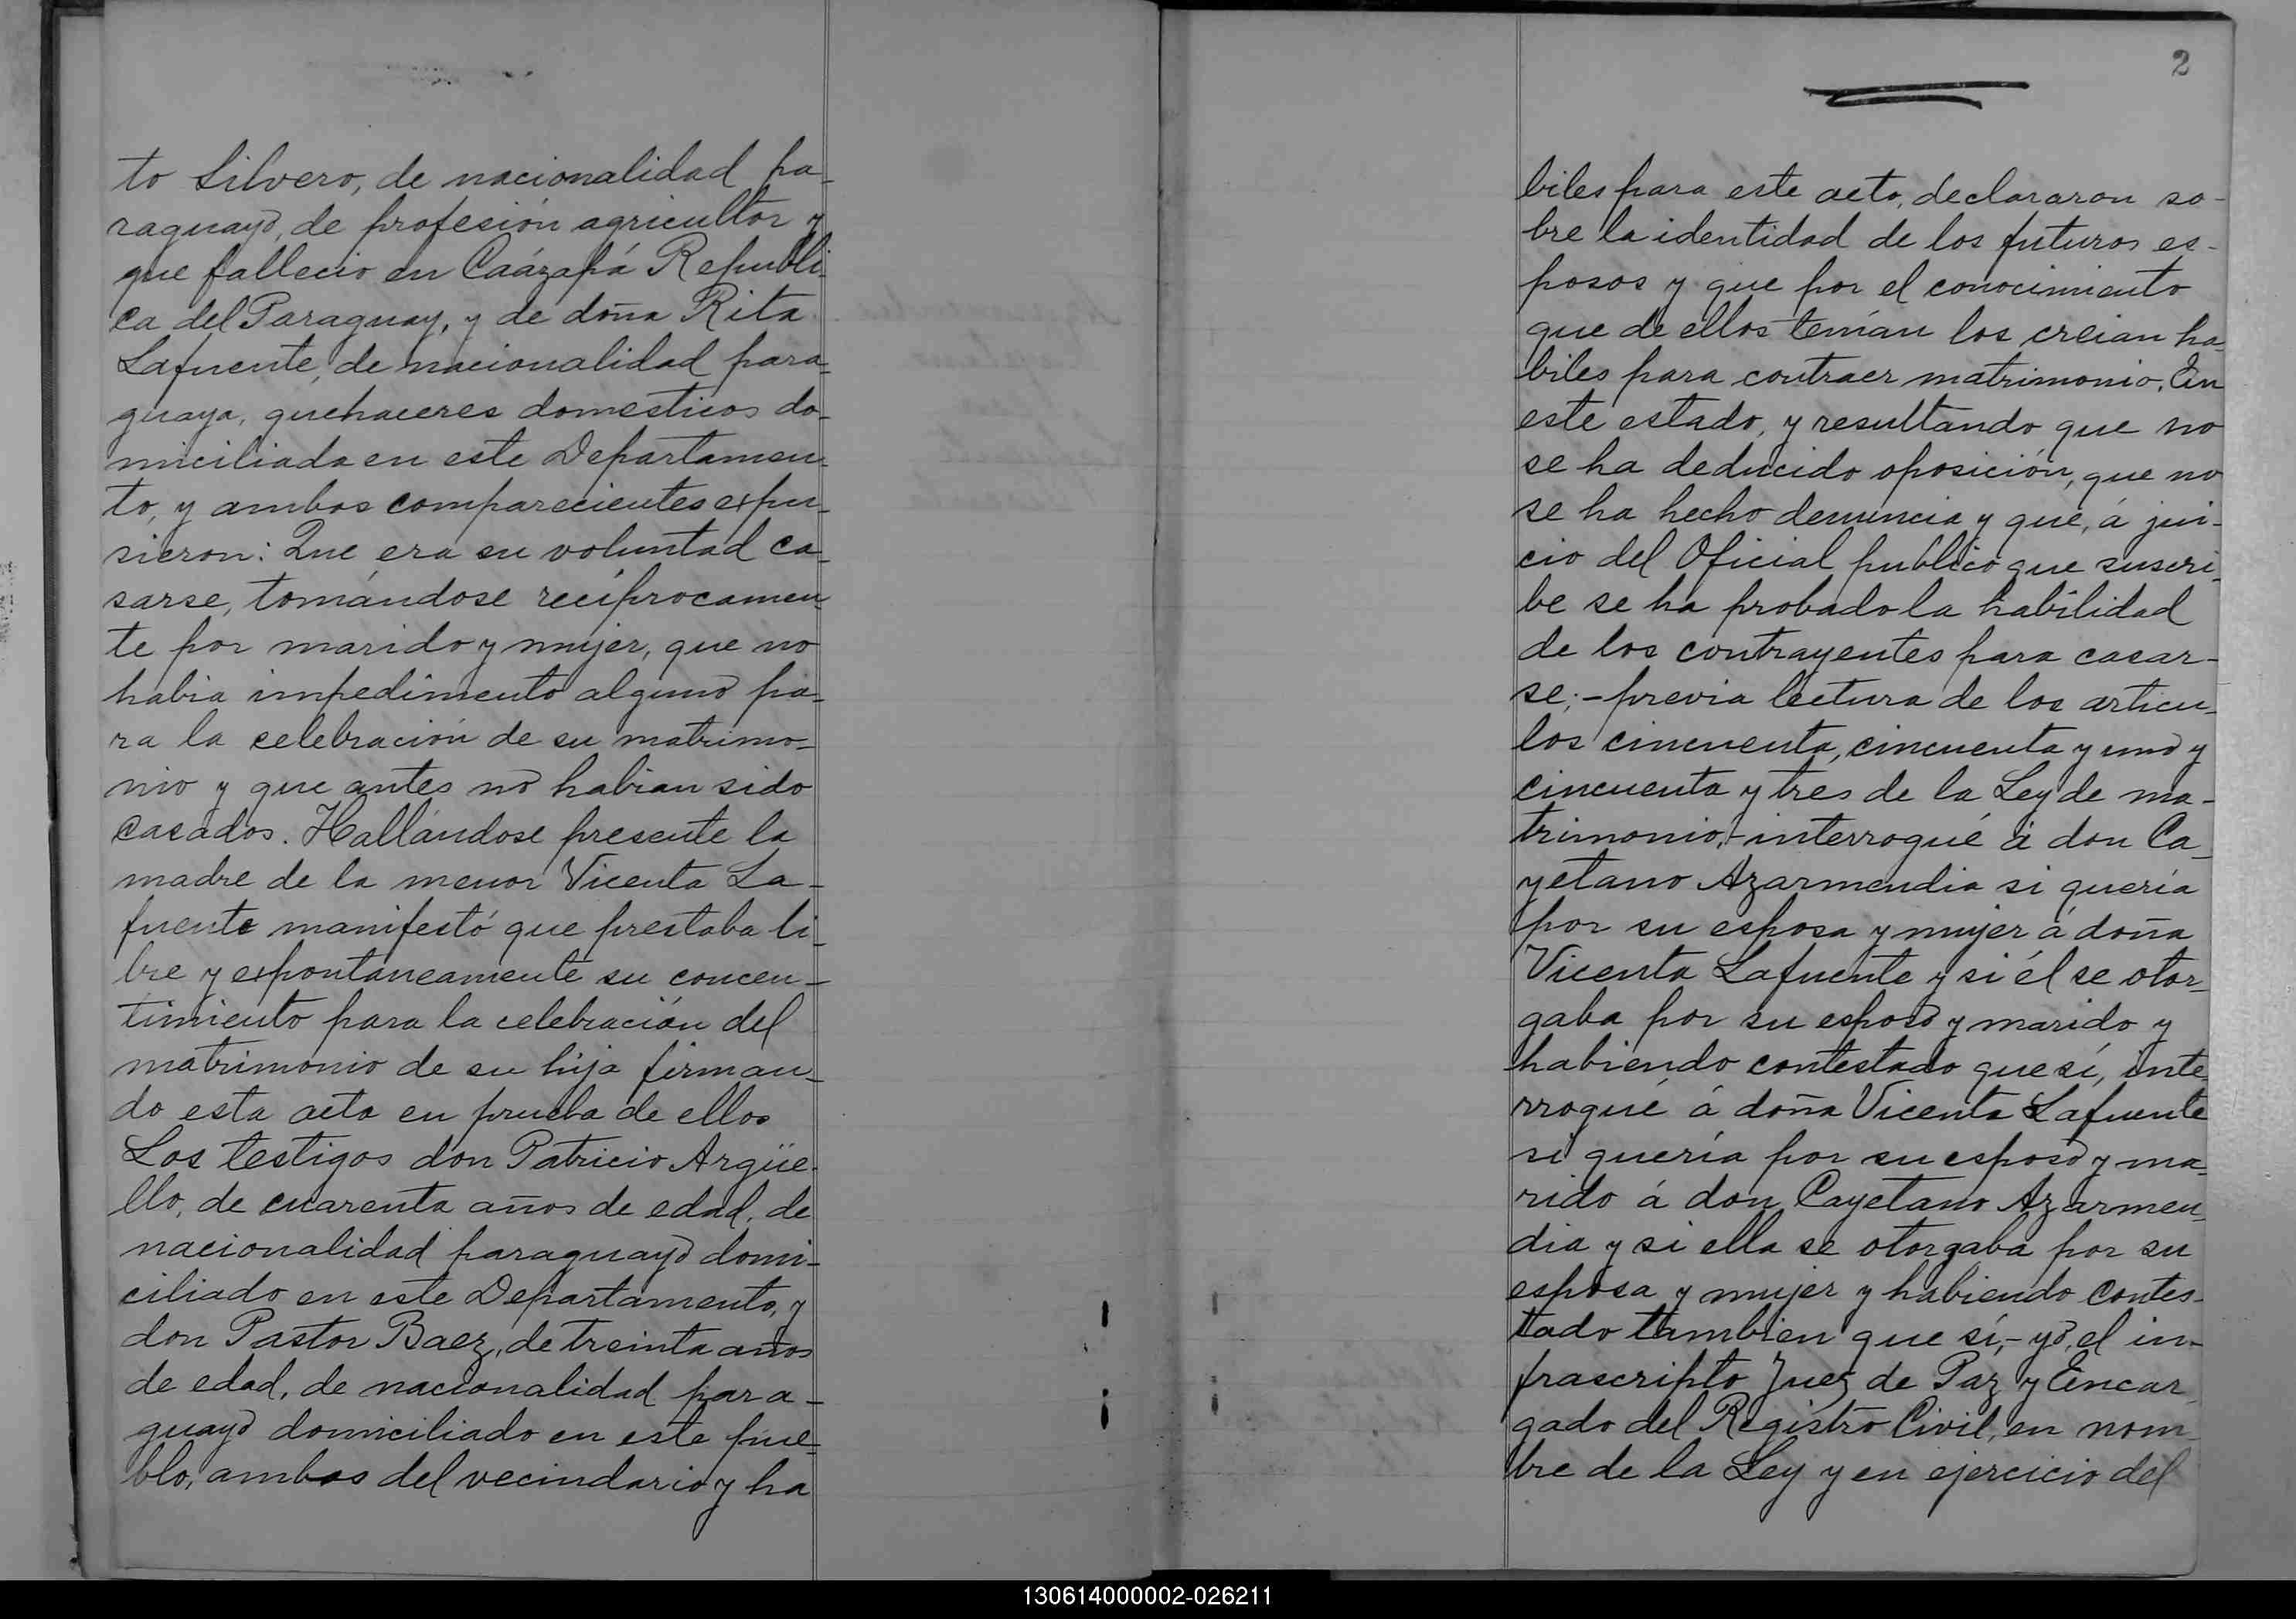 to Silvero, de nacionalidad pa-
raguayo, de profesión agricultor y
que fallecio en Caázapá Republi-
ca del Paraguay, y de doña Rita
Lafuente, de nacionalidad para-
guaya, quehaceres domesticos do-
miciliada en este Departamen-
to, y ambos comparecientes expu-
sieron: Que era su voluntad ca-
sarse, tomándose recíprocamen-
te por marido y mujer, que no
habia impedimento alguno pa-
ra la celebración de su matrimo-
nio y que antes no habian sido
casados. Hallándose presente la
madre de la menor Vicenta La-
fuente manifestó que prestaba li-
bre y expontaneamente su concen-
timiento para la celebración del
matrimonio de su hija firman-
do esta acta en prueba de ellos
Los testigos don Patricio Argüe-
llo, de cuarenta años de edad, de
nacionalidad paraguayo domi-
ciliado en este Departamento, y
don Pastor Baez, de treinta años
de edad, de nacionalidad para-
guayo domiciliado en este pue-
blo, ambos del vecindario y ha
2
biles para este acto, declararon so-
bre la identidad de los futuros es-
posos y que por el conocimiento
que de ellos tenían los creian ha-
biles para contraer matrimonio. En
este estado, y resultando que no
se ha deducido oposición, que no
se ha hecho denuncia y que, á jui-
cio del Oficial publico que suscri-
be se ha probado la habilidad
de los contrayentes para casar-
se;- previa lectura de los articu-
los cincuenta, cincuenta y uno y
cincuenta y tres de la Ley de ma-
trimonio,- interrogué á don Ca-
yetano Azarmendia si quería
por su esposa y mujer á doña
Vicenta Lafuente y si él se otor-
gaba por su esposo y marido y
habiendo contestado que sí, inte-
rrogué á doña Vicenta Lafuente
si quería por su esposo y ma-
rido á don Cayetano Azarmen-
dia y si ella se otorgaba por su
esposa y mujer y habiendo contes-
tado tambien que sí,- yo, el in-
frascripto Juez de Paz y Encar-
gado del Registro Civil, en nom-
bre de la Ley y en ejercicio del
130614000002-026211